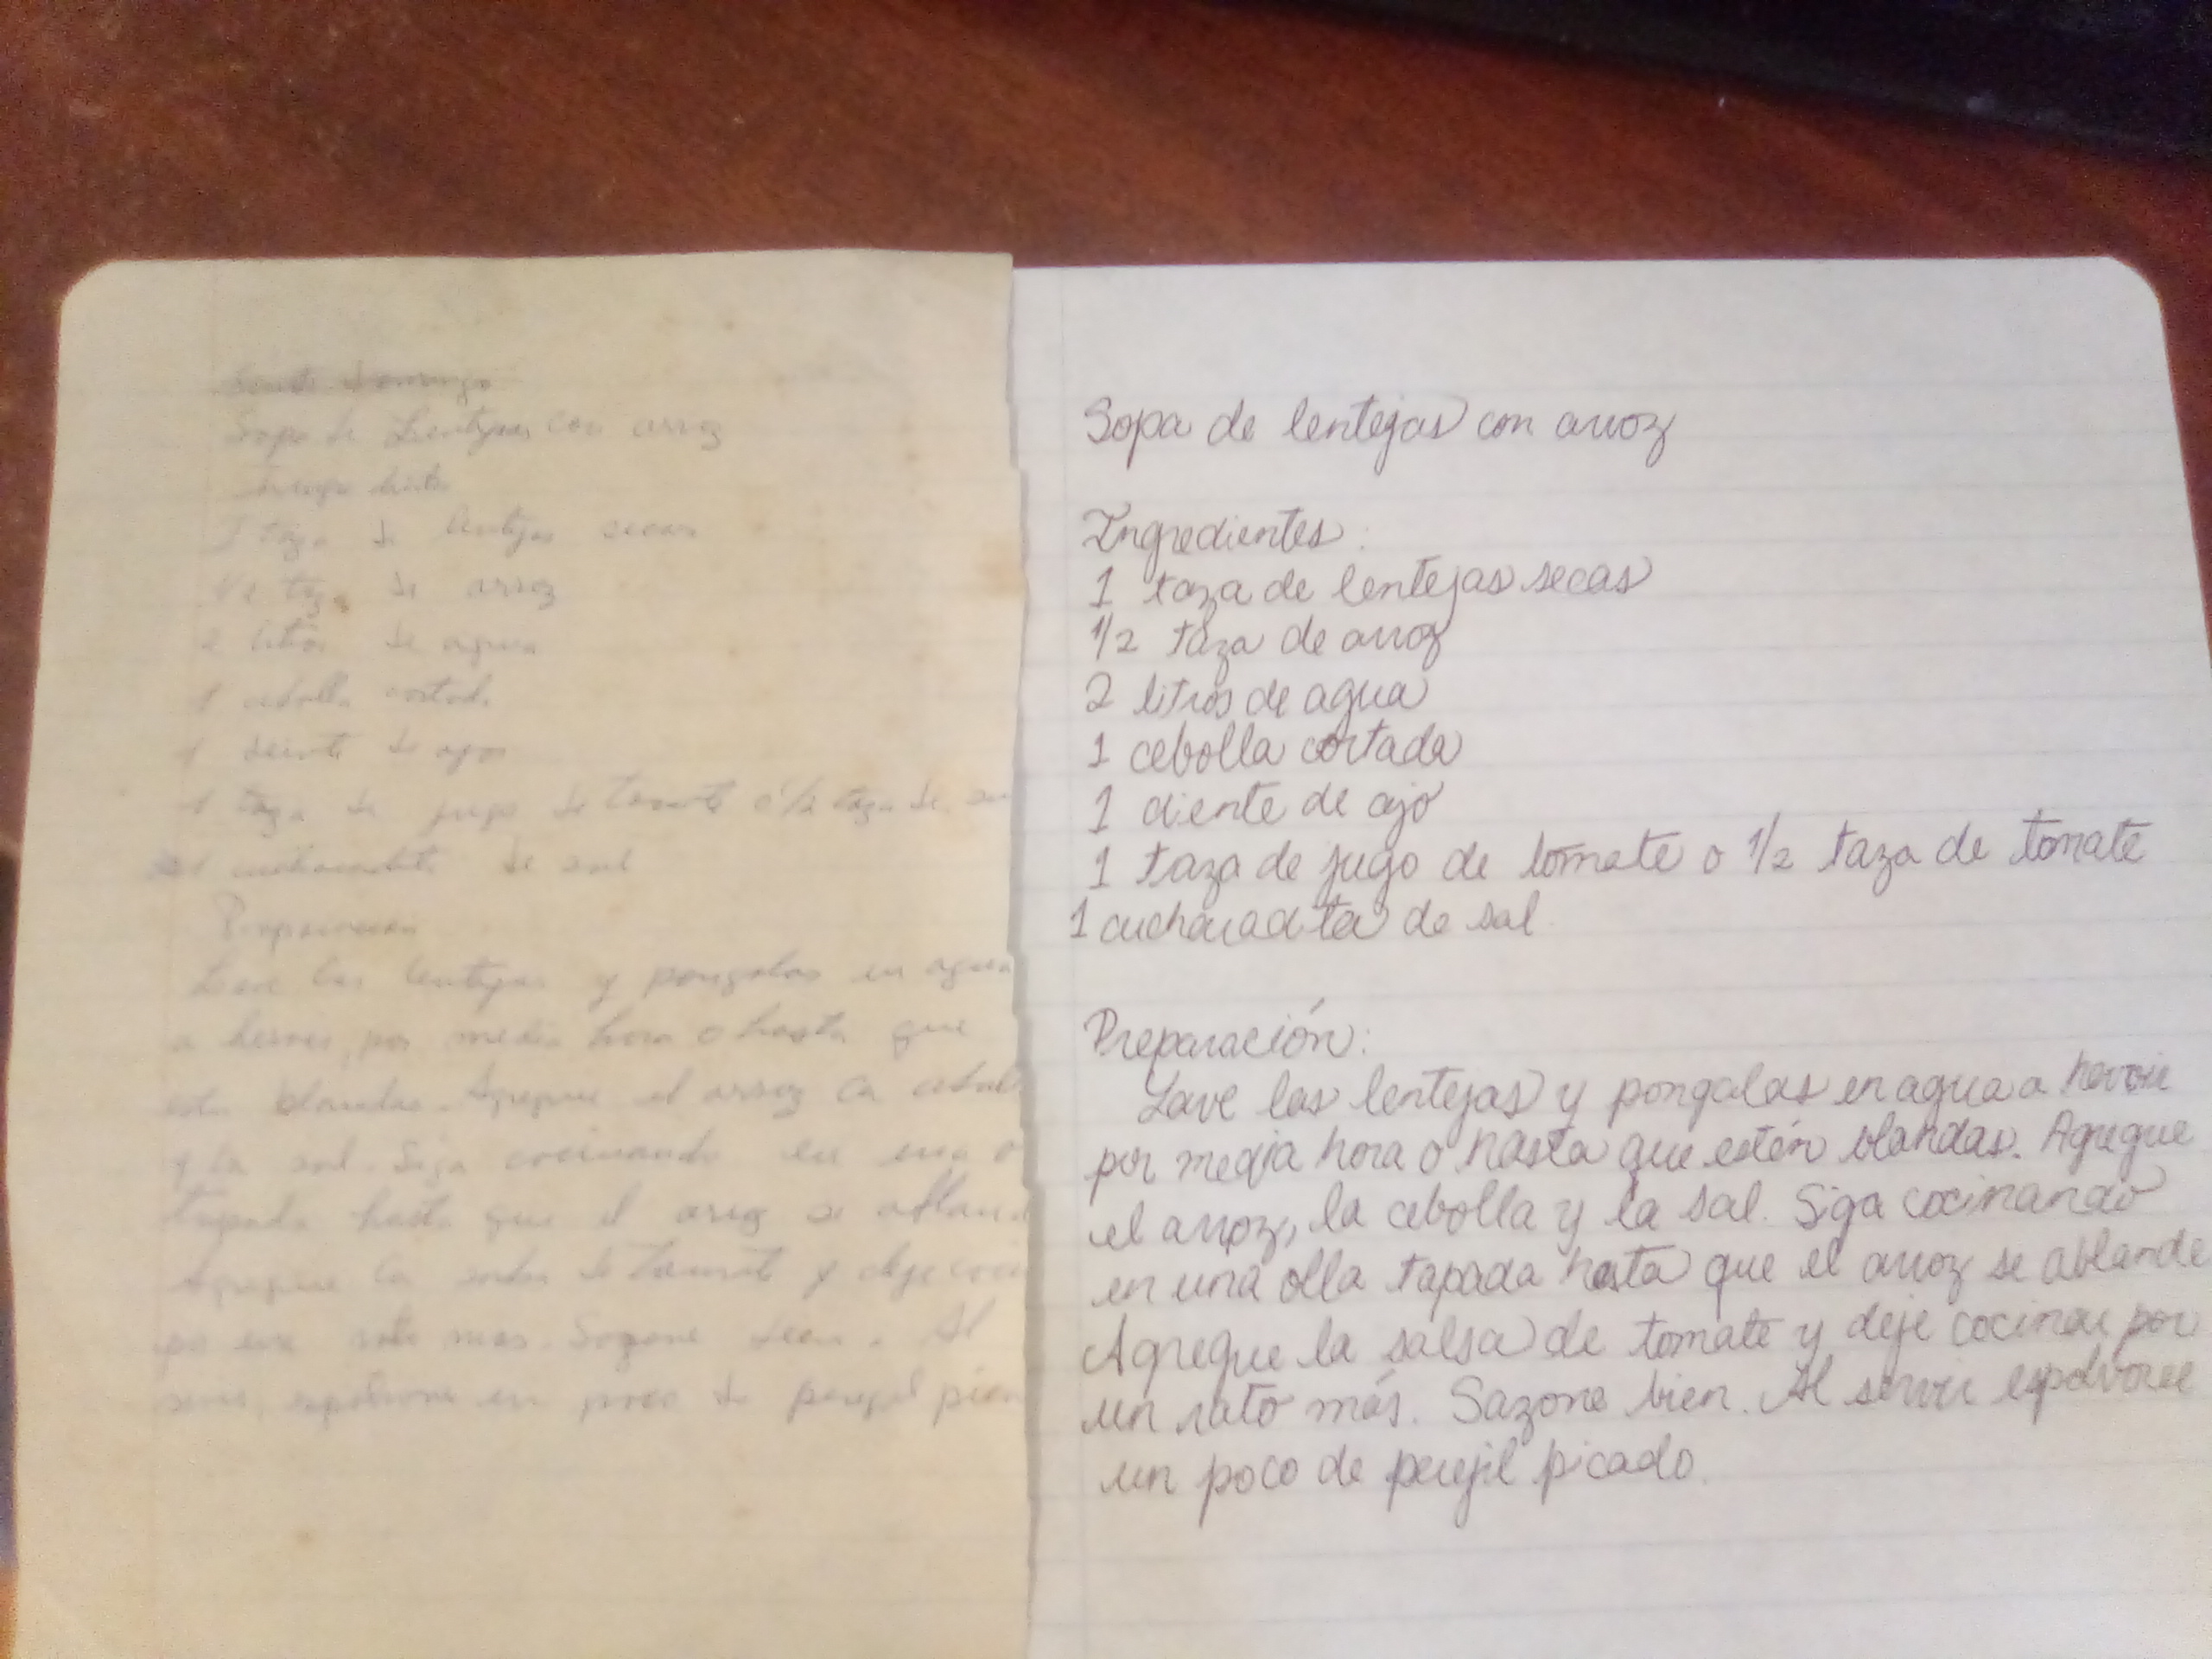 Sopa de Lentejas con arroz
1 taza de lentejas secas
1/2 taza de arroz
2 litros de agua
1 cebolla cortada
1 de ajo
1 taza de jugo de tomate o 1/2 taza de
1 cucharadita de sal
Lave las lentejas y pongalas en agua
a hervir, por media hora o hasta que
este blandas. Agregue el arroz la
y la sal. Siga cocinando en una
tapada hasta que el arroz se
Agregue la salsa de tomate y deje
rato mas. Sazone bien. Al
un poco de perejil
Sopa de lentejas con arroz
Ingredientes:
1 taza de lentejas secas
1/2 taza de arroz
2 litros de agua
1 cebolla cortada
1 diente de ajo
1 taza de jugo de tomate o 1/2 taza de tomate
1 cucharadita de sal.
Preparación:
Lave las lentejas y pongalas en agua a hervir
por media hora o hasta que estén blandas. Agregue
el arroz, la cebolla y la sal. Siga cocinando
en una olla tapada hasta que el arroz se ablande
Agregue la salsa de tomate y deje cocinar por
un rato más. Sazone bien. Al servir espolvoree
un poco de perejil picado.